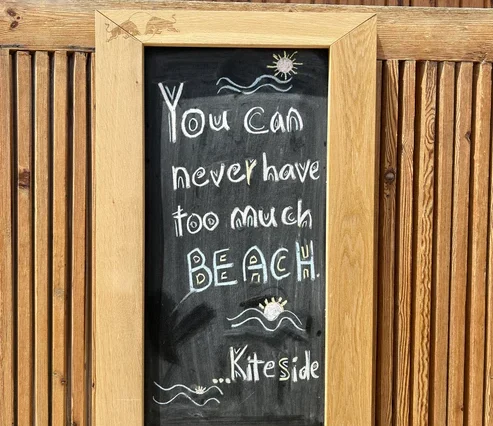 You can
never have
too much
BEACH.
...Kiteside